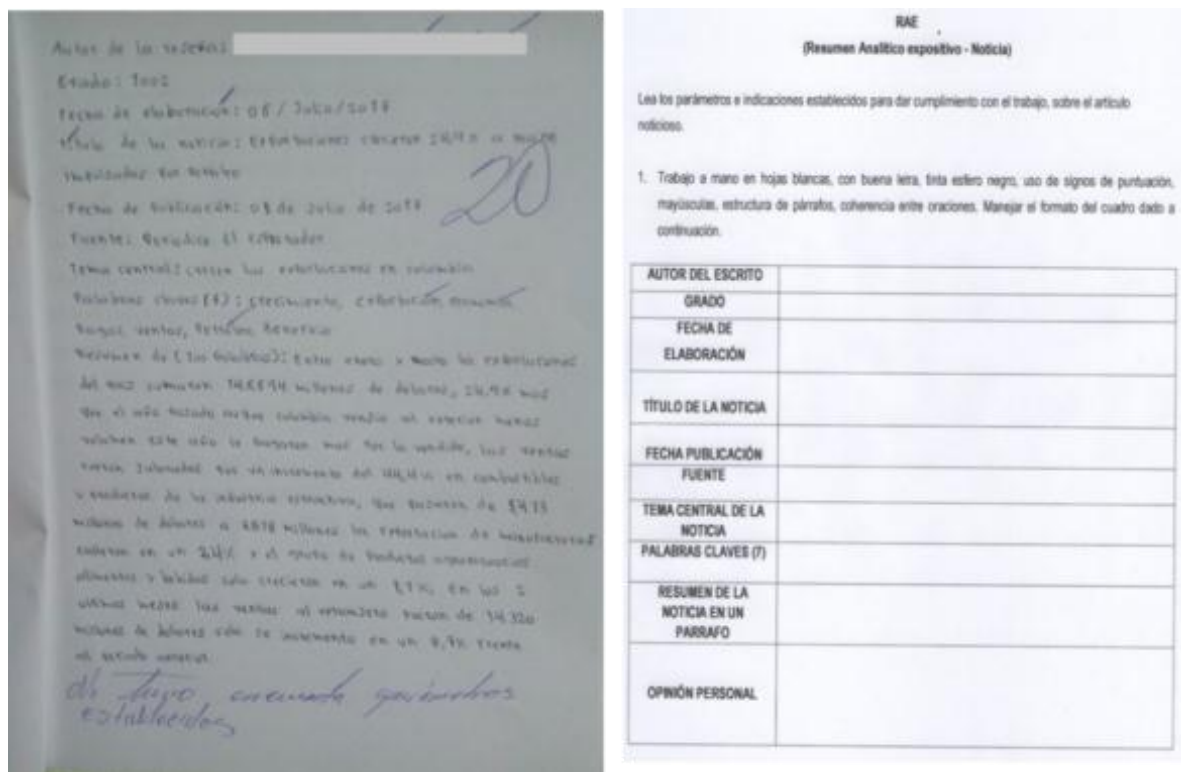 Autor de la reseña:
Grado: 1002
Fecha de elaboración: 06 / Julio / 2017
título de la noticia: Exportaciones crecieron a mayo
impulsadas por
Fecha de Publicación: 03 de Julio de 2017
20
Fuente: Periodico El Espectador
Tema central: crecen las exportaciones en colombia
Palabras claves (7): crecimiento, exportación, economía
Pagos, ventas, Petróleo, Beneficio
Resumen de la noticia: Entre enero y mayo las exportaciones
del país sumaron millones de dolares, más
que el año pasado colombia vendio al exterior
este año le pagaron mas por lo vendido, las ventas
fueron jalonadas por un incremento del en combustibles
y productos de la industria extractiva, que pasaron de
millones de dolares a millones las exportacion de manufacturas
cayeron en un y el grupo de Productos agropecuarios
alimentos y bebidas solo crecieron en un en los
ultimos meses las ventas al extranjero fueron de 14.320
millones de dolares solo se incremento en un frente
al periodo anterior.
No tuvo encuenta parámetros
establecidos
RAE
(Resumen Analítico expositivo - Noticia)
Lea los parámetros e indicaciones establecidos para dar cumplimiento con el trabajo, sobre el artículo
noticioso.
1. Trabajo a mano en hojas blancas, con buena letra, tinta esfero negro, uso de signos de puntuación,
mayúsculas, estructura de párrafos, coherencia entre oraciones. Manejar el formato del cuadro dado a
continuación.
AUTOR DEL ESCRITO
GRADO
FECHA DE
ELABORACIÓN
TÍTULO DE LA NOTICIA
FECHA PUBLICACIÓN
FUENTE
TEMA CENTRAL DE LA
NOTICIA
PALABRAS CLAVES (7)
RESUMEN DE LA
NOTICIA EN UN
PARRAFO
OPINIÓN PERSONAL